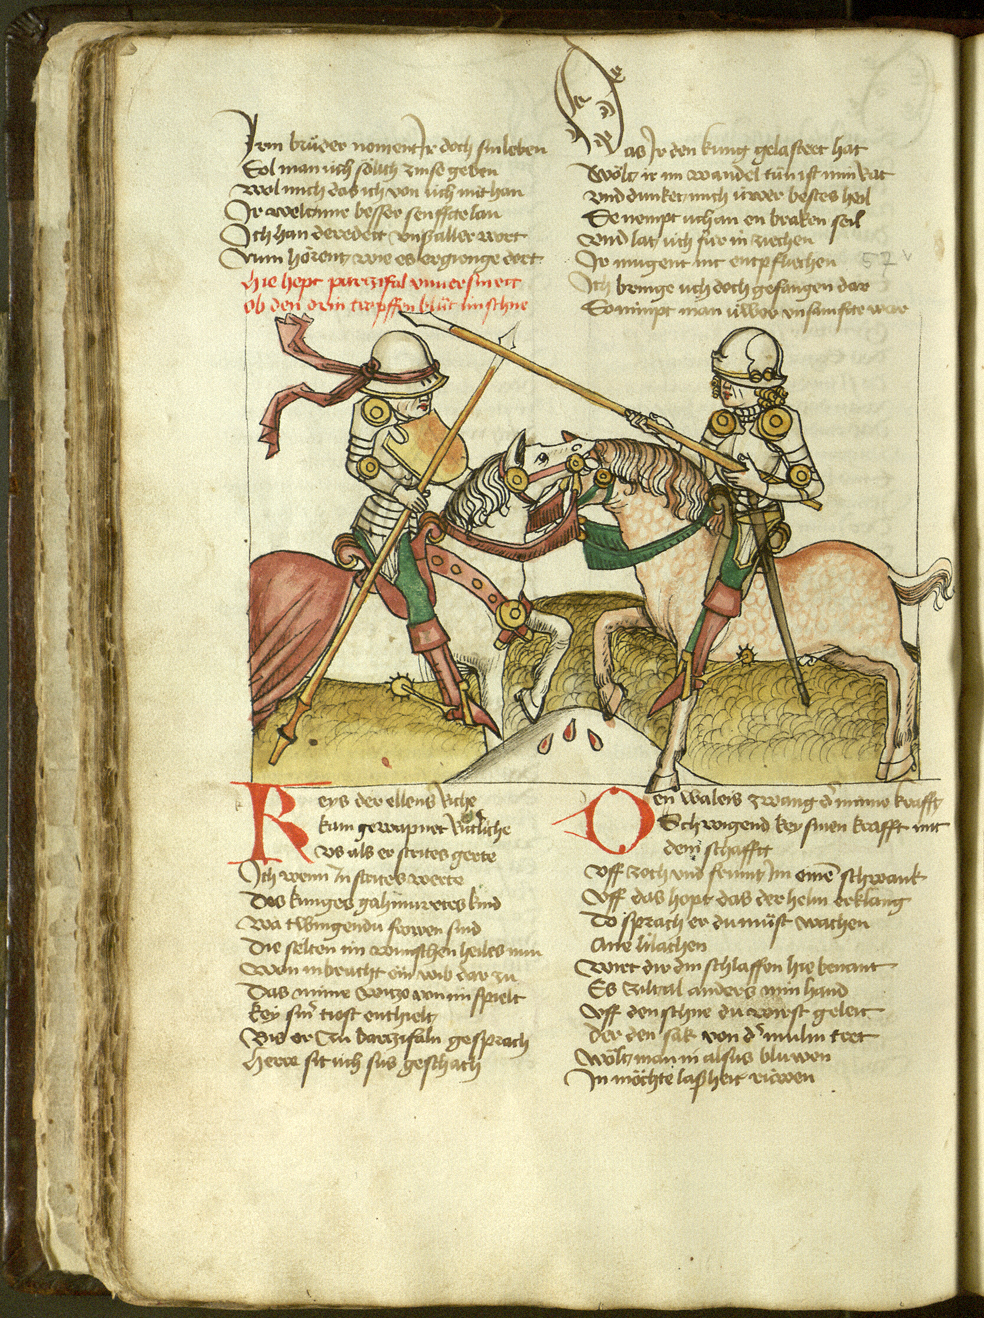 Irm brüder noment Ir doch sin leben
Sol man üch sölich zinse geben
Wol mich das ich von üch nit han
Ir welt mir besser senffte lan
Ich han deredett unß aller wort
Nun hörent wie es ergienge dort
hie hept parzifal unversint
ob den drin tropffen blüt im schne
Was Ir den kung gelastert hat
Wölt ir im wandel tün ist min Rat
und dunket mich üwer bestes heil
So nempt uch an en braken seil
und lat üch für in ziechen
Ir mugent nit entpfliechen
52 v
Ich bringe uch doch gefangen dar
So nimpt man üwer unsamfte war
Keys der ellens Riche
kam gewapnet Ritliche
Us als er strites gerte
Ich wenn In strites werte
Des kunges gahmuretes kind
Wa twingendu frowen sind
Die selten im wunschen heiles nun
Wan in bracht ein wib dar zu
Das minne witze von im spielt
key sinr tiost enthielt
Bis er Zu barzifaln gesprach
Herre sit uch sus geschach
Den waleis zwang der minne krafft
Schwigend key sinen krafft mit
dem schafft
Uff zoch und frumt Im einē schwank
Uff das hopt das der helm erklang
Do sprach er du müst wachen
Ane lilachen
Wirt dir din schlaffen hie benant
Es zilt al anders min hand
Uff den schne du wirst geleit
der den sak von der mulin treit
Wölt man in alsus bluwen
In möchte laßheit rüwen